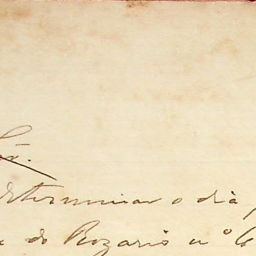 Snr.
determinar o dia
do Rozario nº 6